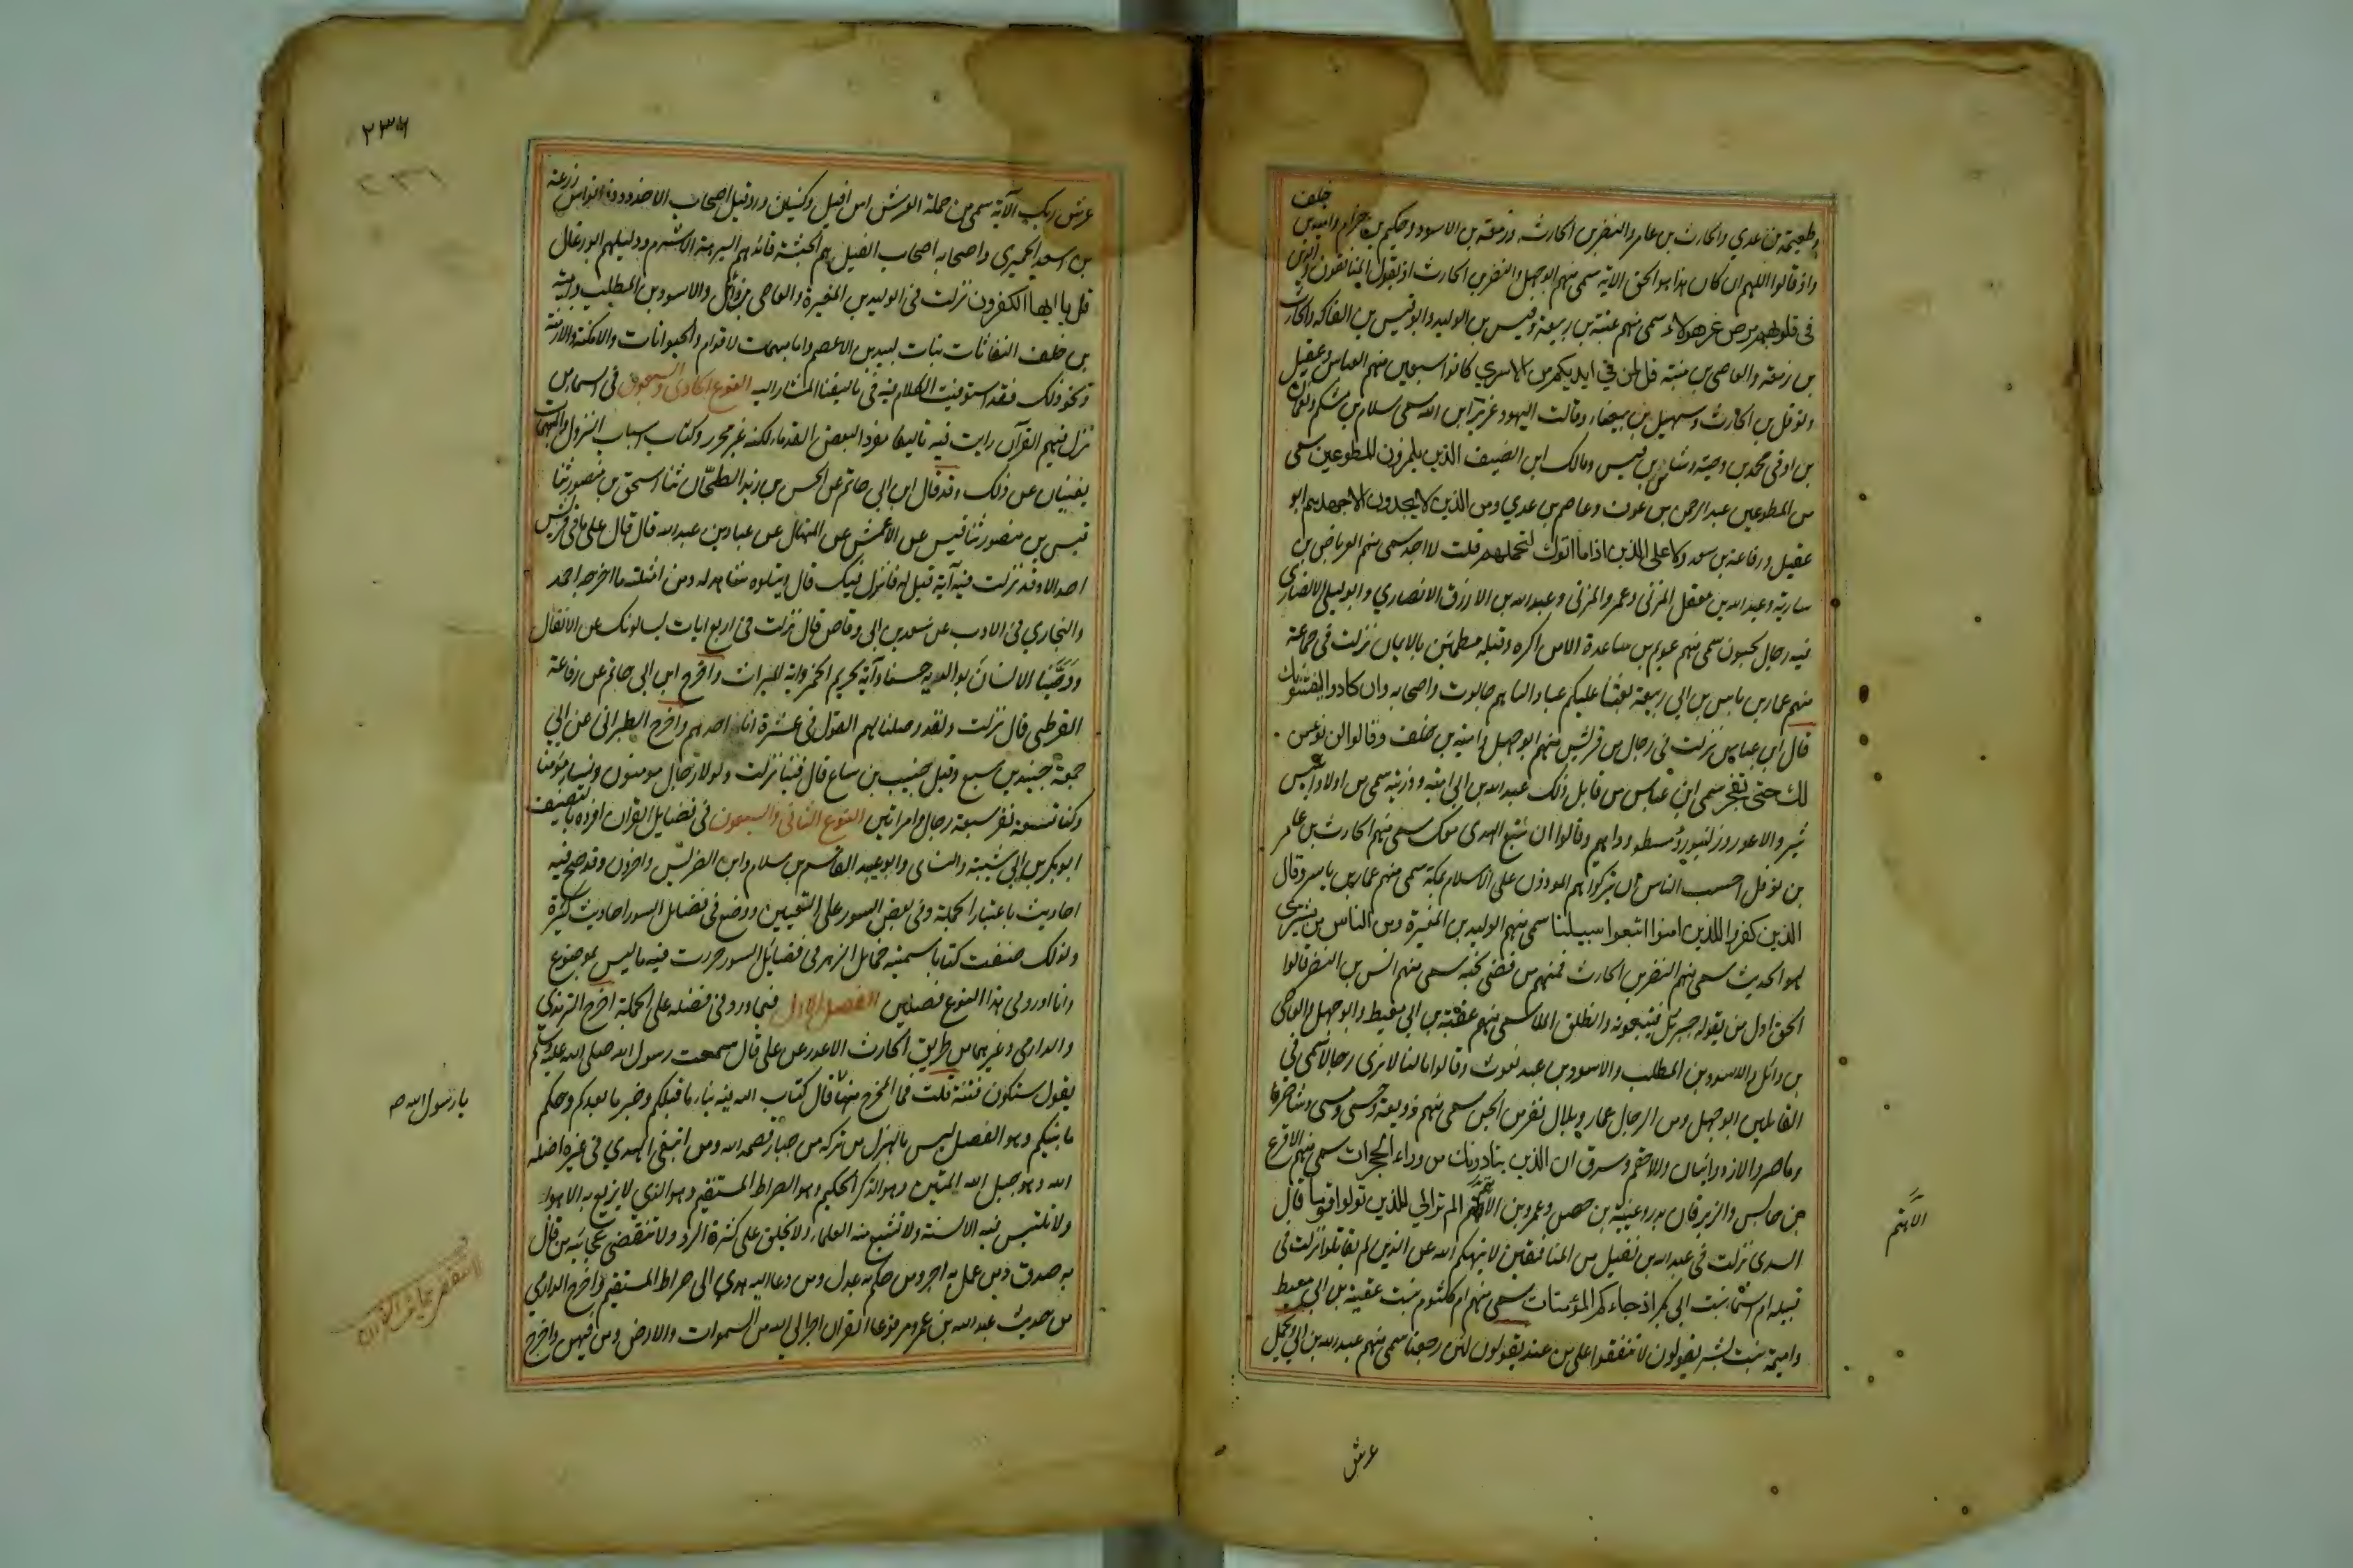 خلف
وطعيمة بن عدي والحارث بن عامر والنضر بن الحارث وزمعة بن الاسود وحكيم بن حزام وامية بن
واذ قالوا اللهم ان كان هذا هو الحق الاية سمى منهم ابو جهل والنضر بن الحارث اذ يقول المنافقون والذين
فى قلوبهم مرض غر هولاء سمى منهم عتبة بن ربيعة وقيس بن الوليد وابو قيس بن الفاكه والحارث
بن زمعة والعاصى بن منبه قل لمن في ايديكم من الاسري كانوا سبعين منهم العباس وعقيل
ونوفل بن الحارث وسهيل بن بيضاء وقالت اليهود عزير ابن الله سمى سلام بن مشكم ونعمان
بن اوفى محمد بن دحية وشاس بن قيس ومالك ابن الضيف الذين يلمزون المطوعين سمى
من المطوعين عبد الرحمن بن عوف وعاصم بن عدي ومن الذين لا يجدون الا جهدهم ابو
عقيل ورفاعة بن سعد ولا على الذين اذا ما اتوك لتحملهم قلت لا اجد سمى منهم العرباض بن
سارية وعبد الله بن مغفل المزنى وعمرو المزنى وعبد الله بن الازرق الانصاري وابو ليلى الانصارى
فيه رجال يحبون سمى منهم عويم بن ساعدة الا من اكره وقلبه مطمئن بالايمان نزلت فى جماعة
منهم عمار بن ياسر بن ابي ربيعة بعثنا عليكم عبادا لنا هم جالوت واصحابه وان كادوا ليفتنونك
قال ابن عباس نزلت في رجال من قريش منهم ابو جهل وامية بن خلف وقالوا لن نؤمن
لك حتى تفجر سمى ابن عباس من قايل ذلك عبد الله بن ابي امية وذريته سمى من اولاد ابليس
ثبر والاعور وزلنبور ومسطو وداهم وقالوا ان نتبع الهدى معك سمى منهم الحارث بن عامر
بن نوفل احسب الناس ان يتركوا هم الموذون على الاسلام بمكة سمى منهم عمار بن ياسر وقال
الذين كفروا للذين امنوا اتبعوا سبيلنا سمى منهم الوليد بن المغيرة ومن الناس من يشترى
لهو الحديث سمى منهم النضر بن الحارث فمنهم من قضى نحبه سمى منهم انس بن النضر قالوا
الحق اول من يقوله جبريل فيتبعونه وانطلق الملا سمى منهم عقبة بن ابي معيط وابو جهل والعاصى
بن وائل والاسود بن المطلب والاسود بن عبد يغوث وقالوا ما لنا لا نرى رجالا سمى فى
القايلين ابو جهل ومن الرجال عمار وبلال نفر من الجن سمى منهم زوبعة وحسى ومسى وشاصر
وماصر والازد وانيان والاحقم وسرق ان الذين ينادونك من وراء الحجرات سمى منهم الاقرع
بن حابس والزبرقان بن بدر وعيينة بن حصن وعمرو بن الاهتم الم تر الي الذين تولوا قوما قال
السدى نزلت فى عبد الله بن نفيل من المنافقين لا ينهيكم الله عن الذين لم يقاتلوا نزلت فى
قتيلة ام اسماء بنت ابى بكر اذ جاءكم المؤمنات سمى منهم ام كلثوم بنت عقبة بن ابى معيط
واميمة بنت بشر يقولون لا تنفقوا على من عند يقولون لئن رجعنا سمى منهم عبد الله بن ابي ويحمل
الاهتم
عرش
٢٣٦
عرش ربك الآية سمى من حملة العرش اسرافيل
بن اسعد الحميري واصحابه اصحاب الفيل هم الحبشة قائدهم ابرهة الاشرم ودليلهم ابو رغال
قل يا ايها الكفرون نزلت فى الوليد بن المغيرة والعاصى بن وائل والاسود بن المطلب وامية
بن خلف النفاثات بنات لبيد بن الاعصم واما مبهمات الاقوام والحيوانات والامكنة والازمنة
ونحو ذلك فقد استوفيت الكلام فيه فى تاليفنا المشار اليه النوع الحادى والسبعون فى اسماء من
نزل فيهم القران رايت فيه تاليفا مفردا لبعض القدماء لكنه غير محرر وكتاب اسباب النزول والمبهمات
يغنيان عن ذلك وقد قال ابن ابي حاتم عن الحسن بن زيد الطحان ثنا اسحق بن منصور ثنا
قيس بن منصور ثنا قيس عن الاعمش عن المنهال عن عباد بن عبد الله قال قال على ما فى قريش
احد الا وقد نزلت فيه آية قيل له فما نزل فيك قال ويتلوه شاهد له ومن امثلته ما اخرجه احمد
والبخاري في الادب عن سعد بن ابى وقاص قال نزلت فى اربع ايات يسالونك عن الانفال
ووصينا الانسان بوالديه حسنا وآية تحريم الخمر واية الميراث واخرج ابن ابى حاتم عن رفاعة
القرظى قال نزلت ولقد وصلنا لهم القول فى عشرة انا احدهم واخرج الطبرانى عن ابي
جمعة جنيد بن سبع وقيل حبيب بن سباع قال فينا نزلت ولولا رجال مومنون ونساء مؤمنات
وكنا تسعة نفر سبعة رجال وامراتين النوع الثانى والسبعون فى فضايل القران افرده بالتصنيف
ابو بكر بن ابي شيبة والنساى وابو عبيد القاسم بن سلام وابن الضريس واخرون وقد صح فيه
احاديث باعتبار الجملة وفى بعض السور على التعيين ووضع فى فضايل السور احاديث كثيرة
ولذلك صنفت كتابا سميته خمايل الزهر فى فضايل السور حررت فيه ما ليس بموضوع
وانا اورد فى هذا النوع فصلين الفصل الاول فيما ورد فى فضله على الجملة اخرج الترمذي
والدارمى وغيرهما من طريق الحارث الاعور عن على قال سمعت رسول الله صلى الله عليه وسلم
يقول ستكون فتنة قلت فما المخرج منها قال كتاب الله فيه نباء ما قبلكم وخبر ما بعدكم وحكم
ما بينكم وهو الفصل ليس بالهزل من تركه من جبار قصمه الله ومن ابتغى الهدي فى غيره اضله
الله وهو حبل الله المتين وهو الذكر الحكيم وهو الصراط المستقيم وهو الذي لا يزيغ به الاهواء
ولا تلتبس به الالسنة ولا تشبع منه العلماء ولا يخلق على كثرة الرد ولا تنقضى عجائبه من قال
به صدق ومن عمل به اجر ومن حكم به عدل ومن دعا اليه هدي الى صراط المستقيم واخرج الدارمي
من حديث عبد الله بن عمر مرفوعا القران احب الي الله من السموات والارض ومن فيهن واخرج
يا رسول الله صه